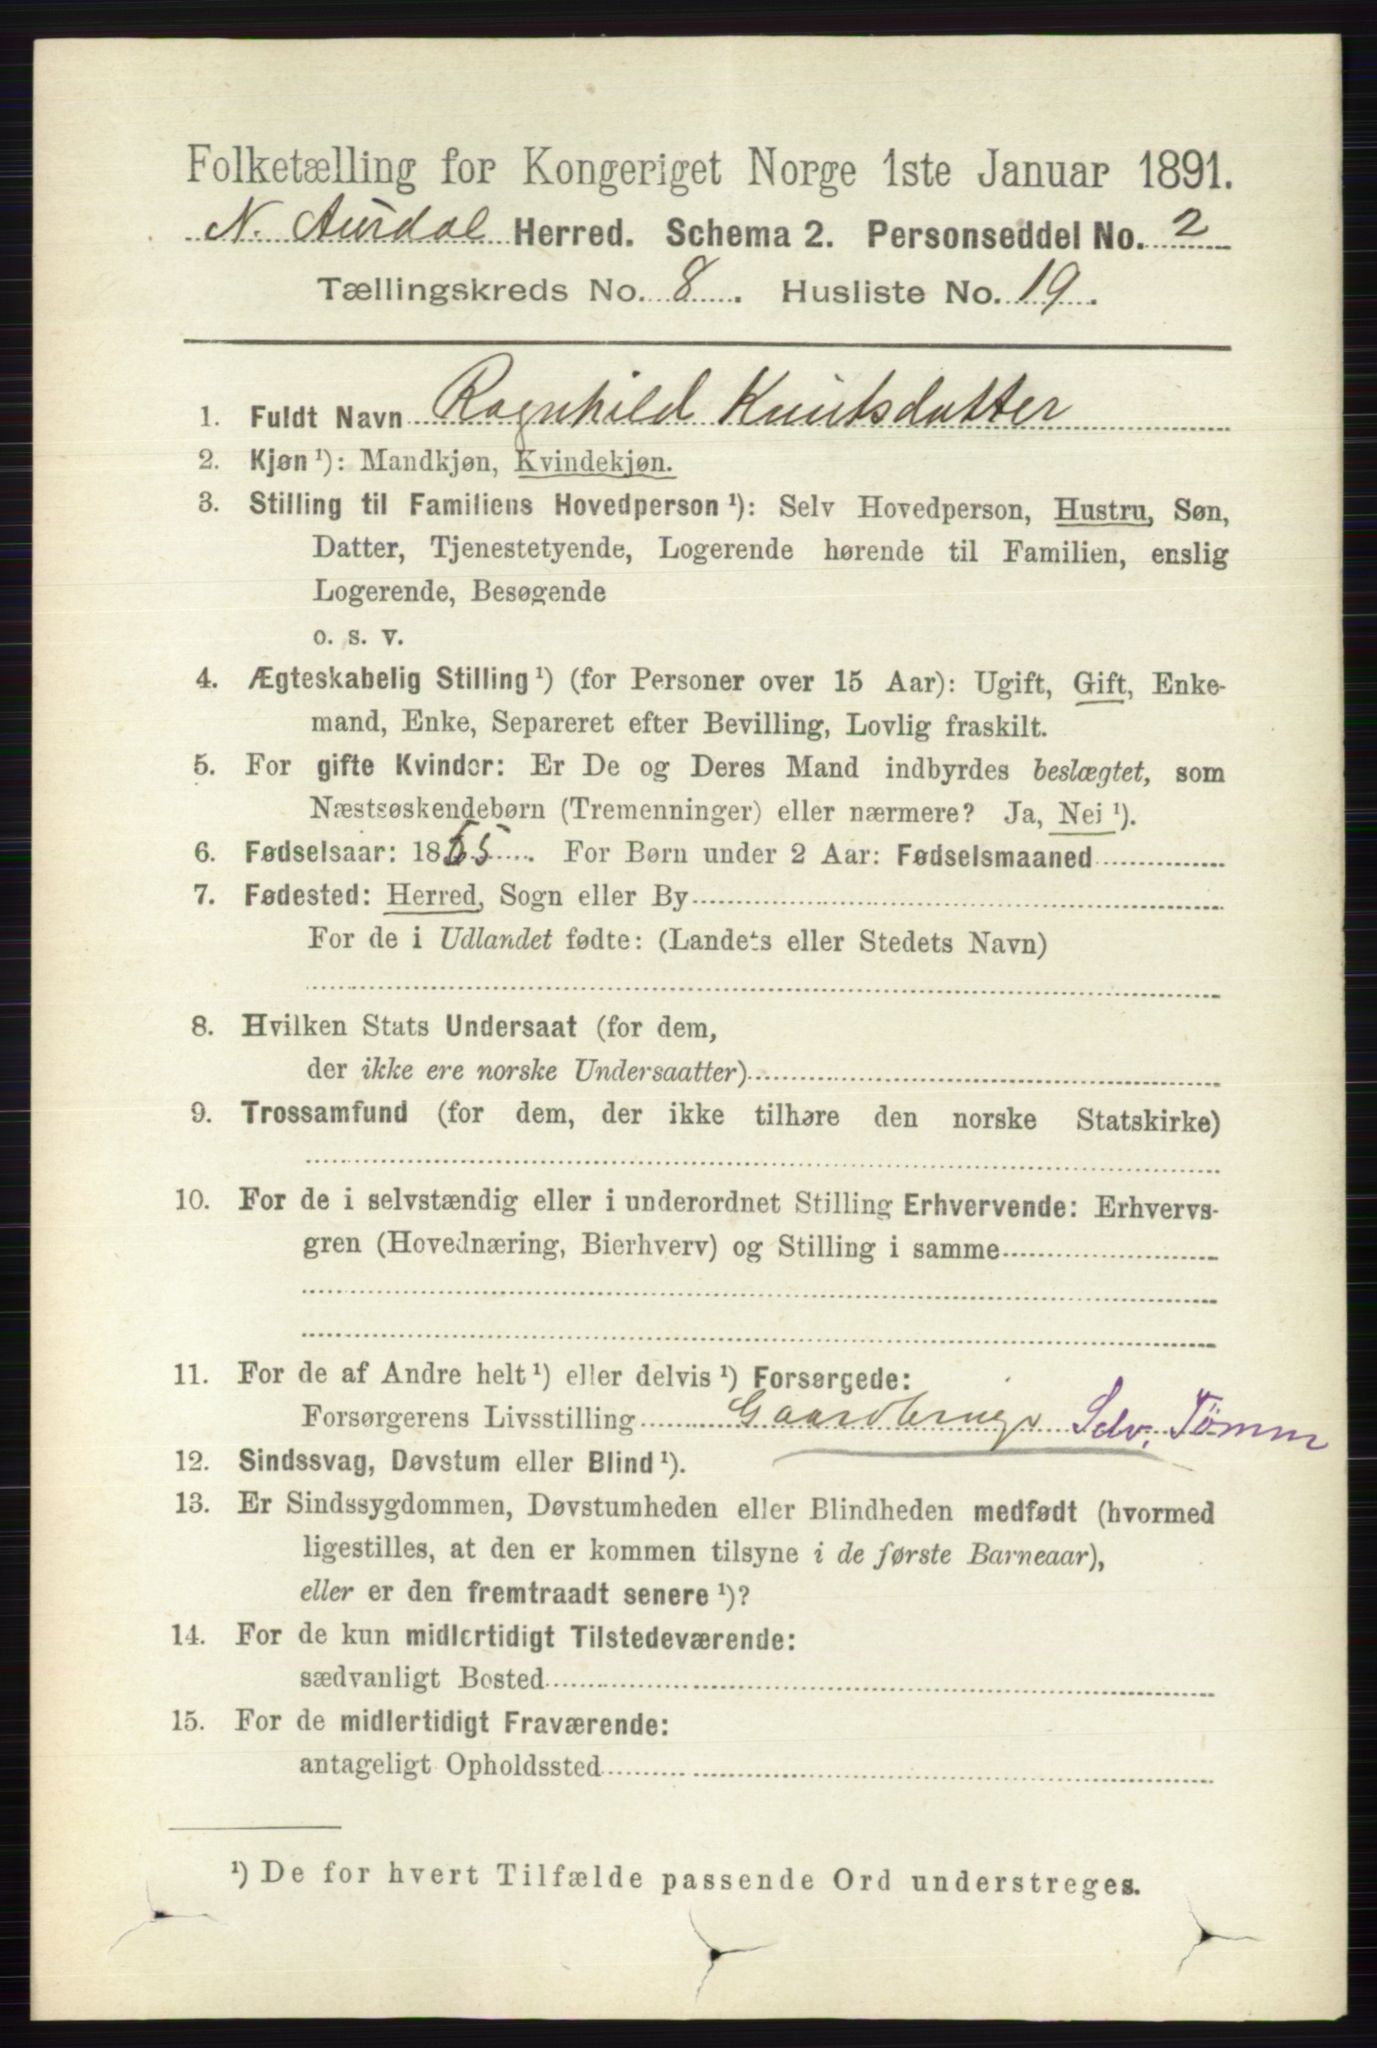 Folketælling for Kongeriget Norge 1ste Januar 1891.
N. Aurdal Herred. Schema 2. Personseddel No. 2
Tællingskreds No. 8. Husliste No. 19.
1. Fuldt Navn Ragnhild Knutsdatter
2. Kjøn ¹): Mandkjøn, Kvindekjøn.
3. Stilling til Familiens Hovedperson ¹): Selv Hovedperson, Hustru, Søn,
Datter, Tjenestetyende, Logerende hørende til Familien, enslig
Logerende, Besøgende
o. s. v.
4. Ægteskabelig Stilling ¹) (for Personer over 15 Aar): Ugift, Gift, Enke-
mand, Enke, Separeret efter Bevilling, Lovlig fraskilt.
5. For gifte Kvinder: Er De og Deres Mand indbyrdes beslægtet, som
Næstsøskendebørn (Tremenninger) eller nærmere? Ja, Nei ¹).
6. Fødselsaar: 1855. For Børn under 2 Aar: Fødselsmaaned
7. Fødested: Herred, Sogn eller By
For de i Udlandet fødte: (Landets eller Stedets Navn)
8. Hvilken Stats Undersaat (for dem,
der ikke ere norske Undersaatter)
9. Trossamfund (for dem, der ikke tilhøre den norske Statskirke)
10. For de i selvstændig eller i underordnet Stilling Erhvervende: Erhvervs-
gren (Hovednæring, Bierhverv) og Stilling i samme
11. For de af Andre helt ¹) eller delvis ¹) Forsørgede:
Forsørgerens Livsstilling Gaardbrug Selv, Tömm
12. Sindssvag, Døvstum eller Blind ¹).
13. Er Sindssygdommen, Døvstumheden eller Blindheden medfødt (hvormed
ligestilles, at den er kommen tilsyne i de første Barneaar),
eller er den fremtraadt senere ¹)?
14. For de kun midlertidigt Tilstedeværende:
sædvanligt Bosted
15. For de midlertidigt Fraværende:
antageligt Opholdssted
¹) De for hvert Tilfælde passende Ord understreges.